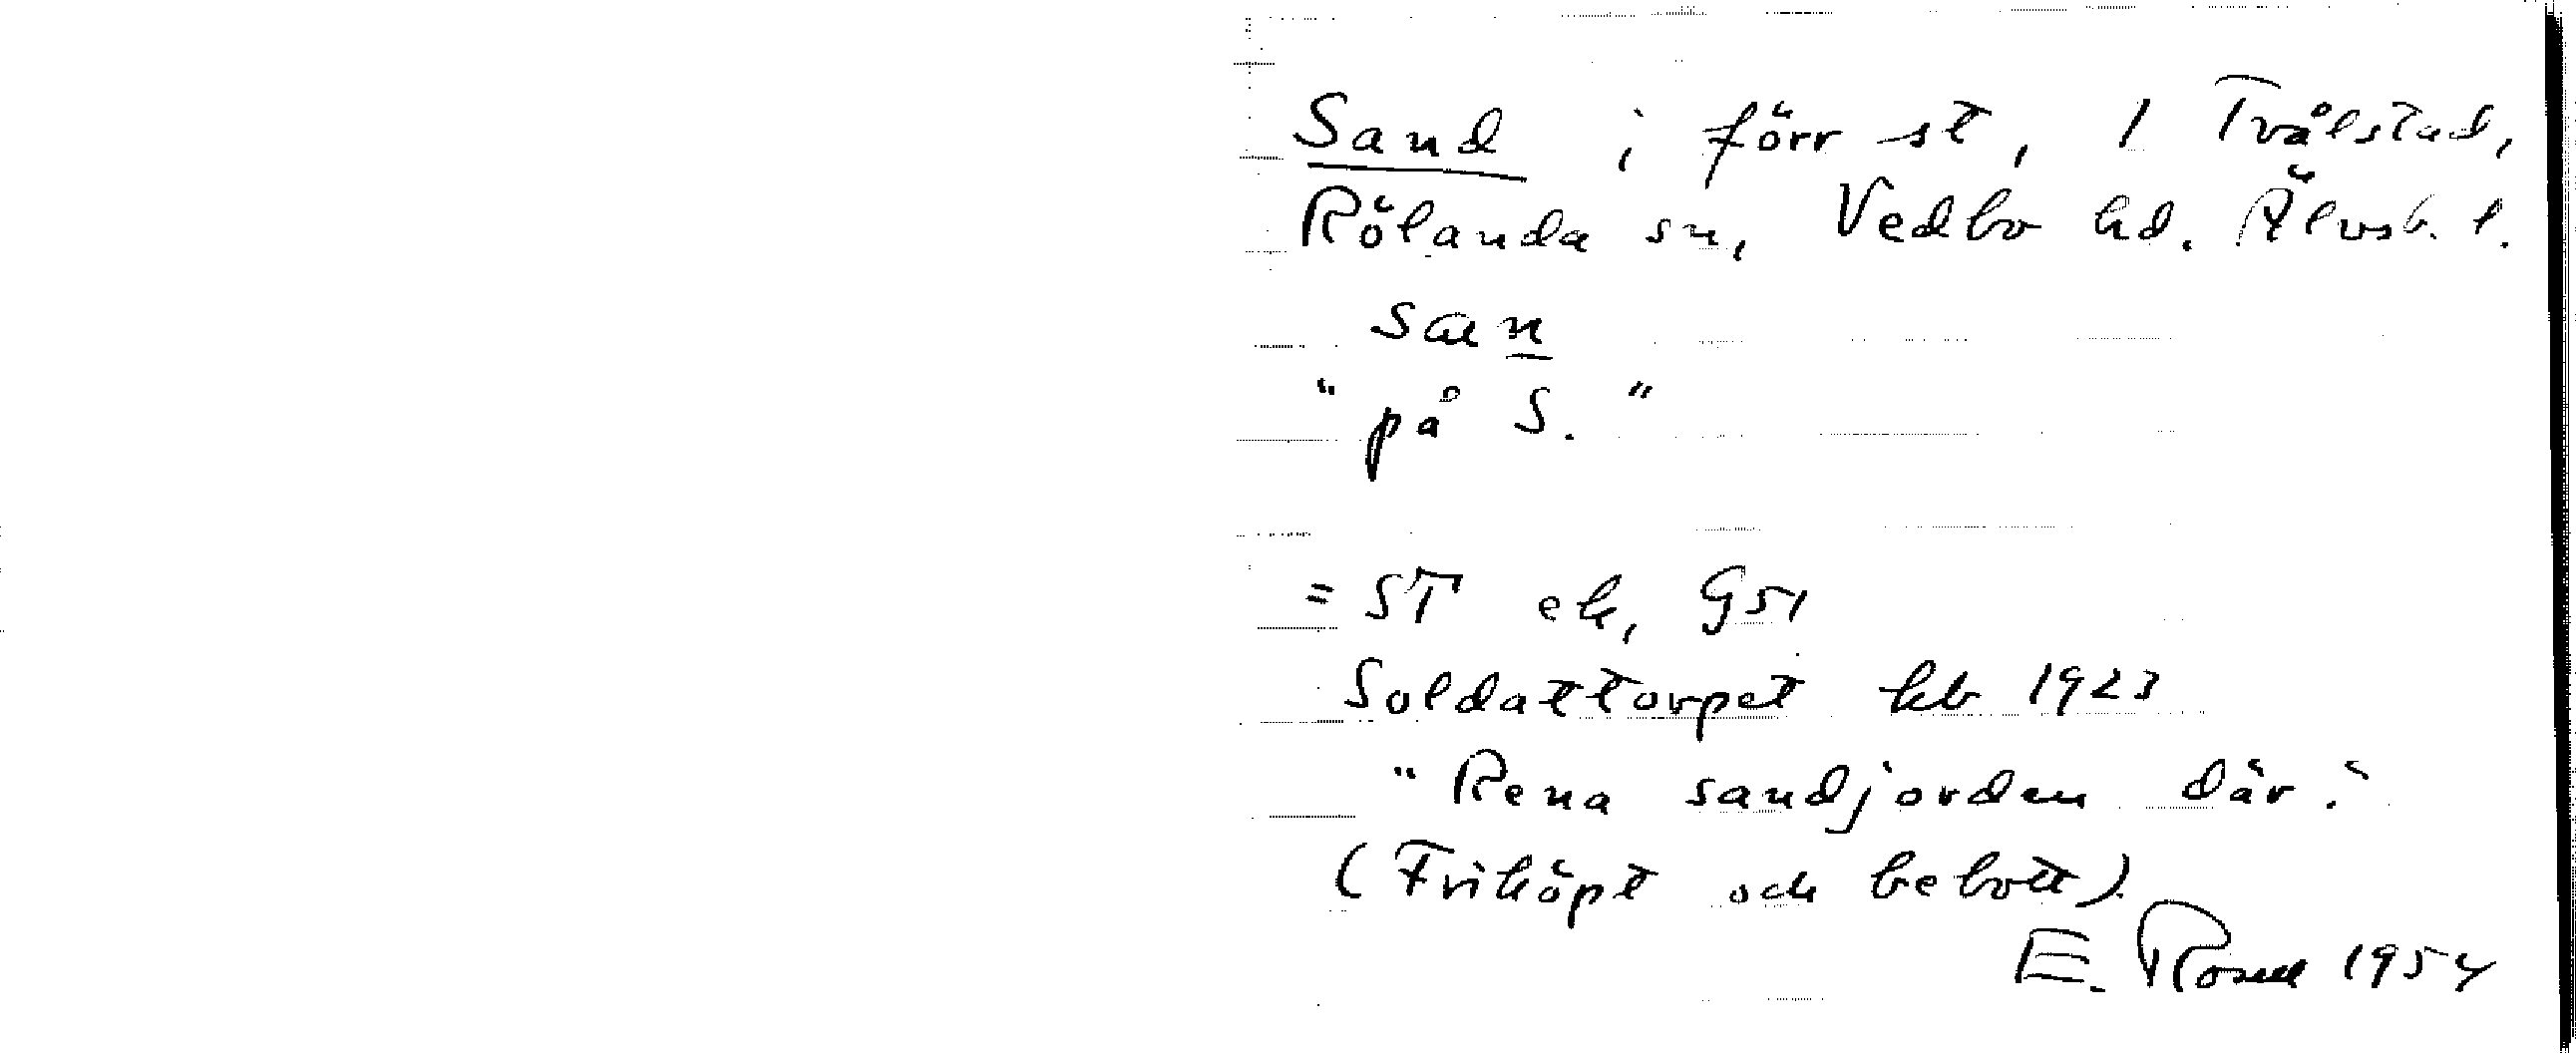 Sand ; förr st, 1 Tvålstad,
Rölanda sn, Vedbo hd. Älvsb. l.
san
"på S."
= ST ek, G51
Soldattorpet kb 1923
"Rena sandjorden där."
(Friköpt och bebott)
E. Rosell 1954